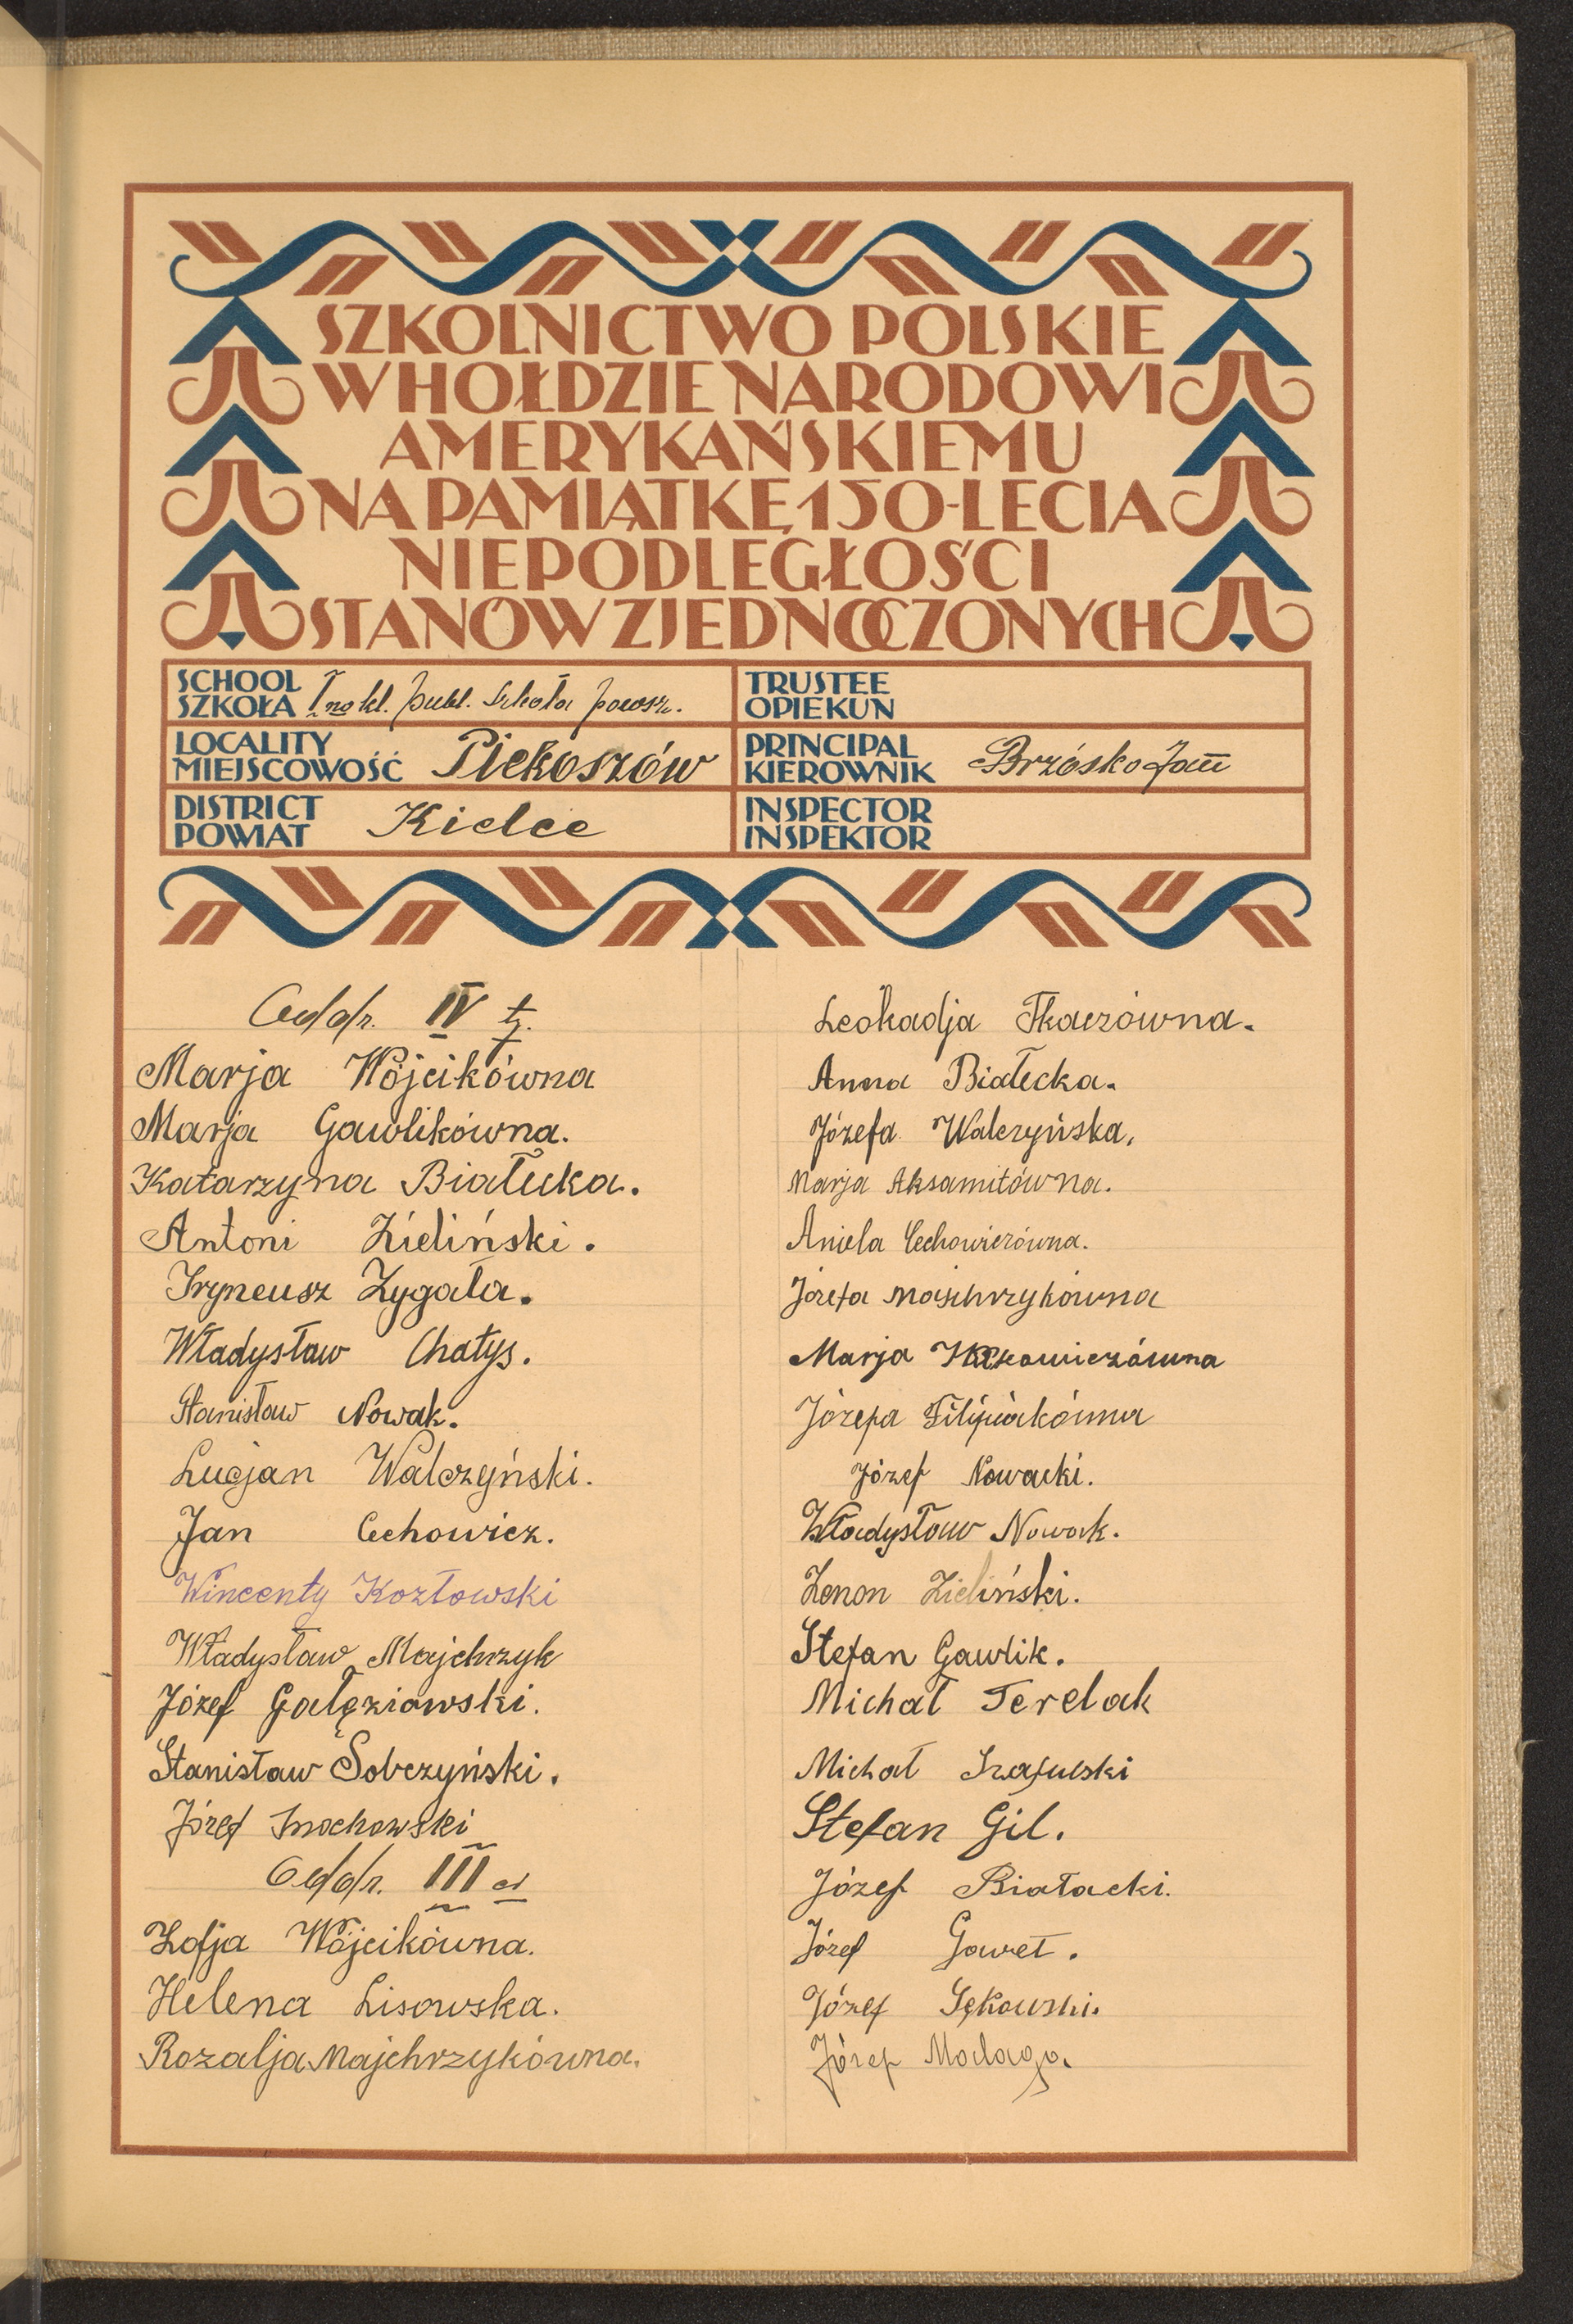 SZKOLNICTWO POLSKIE
W HOŁDZIE NARODOWI
AMERYKAŃSKIEMU
NA PAMIĄTKĘ 150-LECIA
NIEPODLEGŁOŚCI
STANÓW ZJEDNOCZONYCH
SCHOOL
SZKOŁA kl. publ. Szkoła powsz.
TRUSTEE
OPIEKUN
LOCALITY
MIEJSCOWOŚĆ Piekoszów
PRINCIPAL
KIEROWNIK Brzósko Jan
DISTRICT
POWIAT Kielce
INSPECTOR
INSPEKTOR
Oddz. IV
Marja Wójcikówna
Marja Gawlikówna.
Katarzyna Białecka.
Antoni Zieliński.
Iryneusz Zygała.
Władysław Chałys.
Stanisław Nowak.
Lucjan Walczyński.
Jan Cechowicz.
Wincenty Kozłowski
Władysław Majchrzyk
Józef Gałęziowski.
Stanisław Sobczyński.
Józef Snochowski
Oddz. III a
Zofja Wójcikówna.
Helena Lisowska.
Rozalja Majchrzykówna.
Leokadja Tkaczówna.
Anna Białecka.
Józefa Walczyńska,
Marja Aksamitówna.
Aniela Cechowiczówna.
Józefa Majchrzykówna
Marja
Józefa Filipiakówna
Józef Nowacki.
Władysław Nowak.
Zenon Zieliński.
Stefan Gawlik.
Michał Terelak
Michał Szafulski
Stefan Gil.
Józef Białacki.
Józef Gaweł.
Józef Sękowski.
Józef Madago.